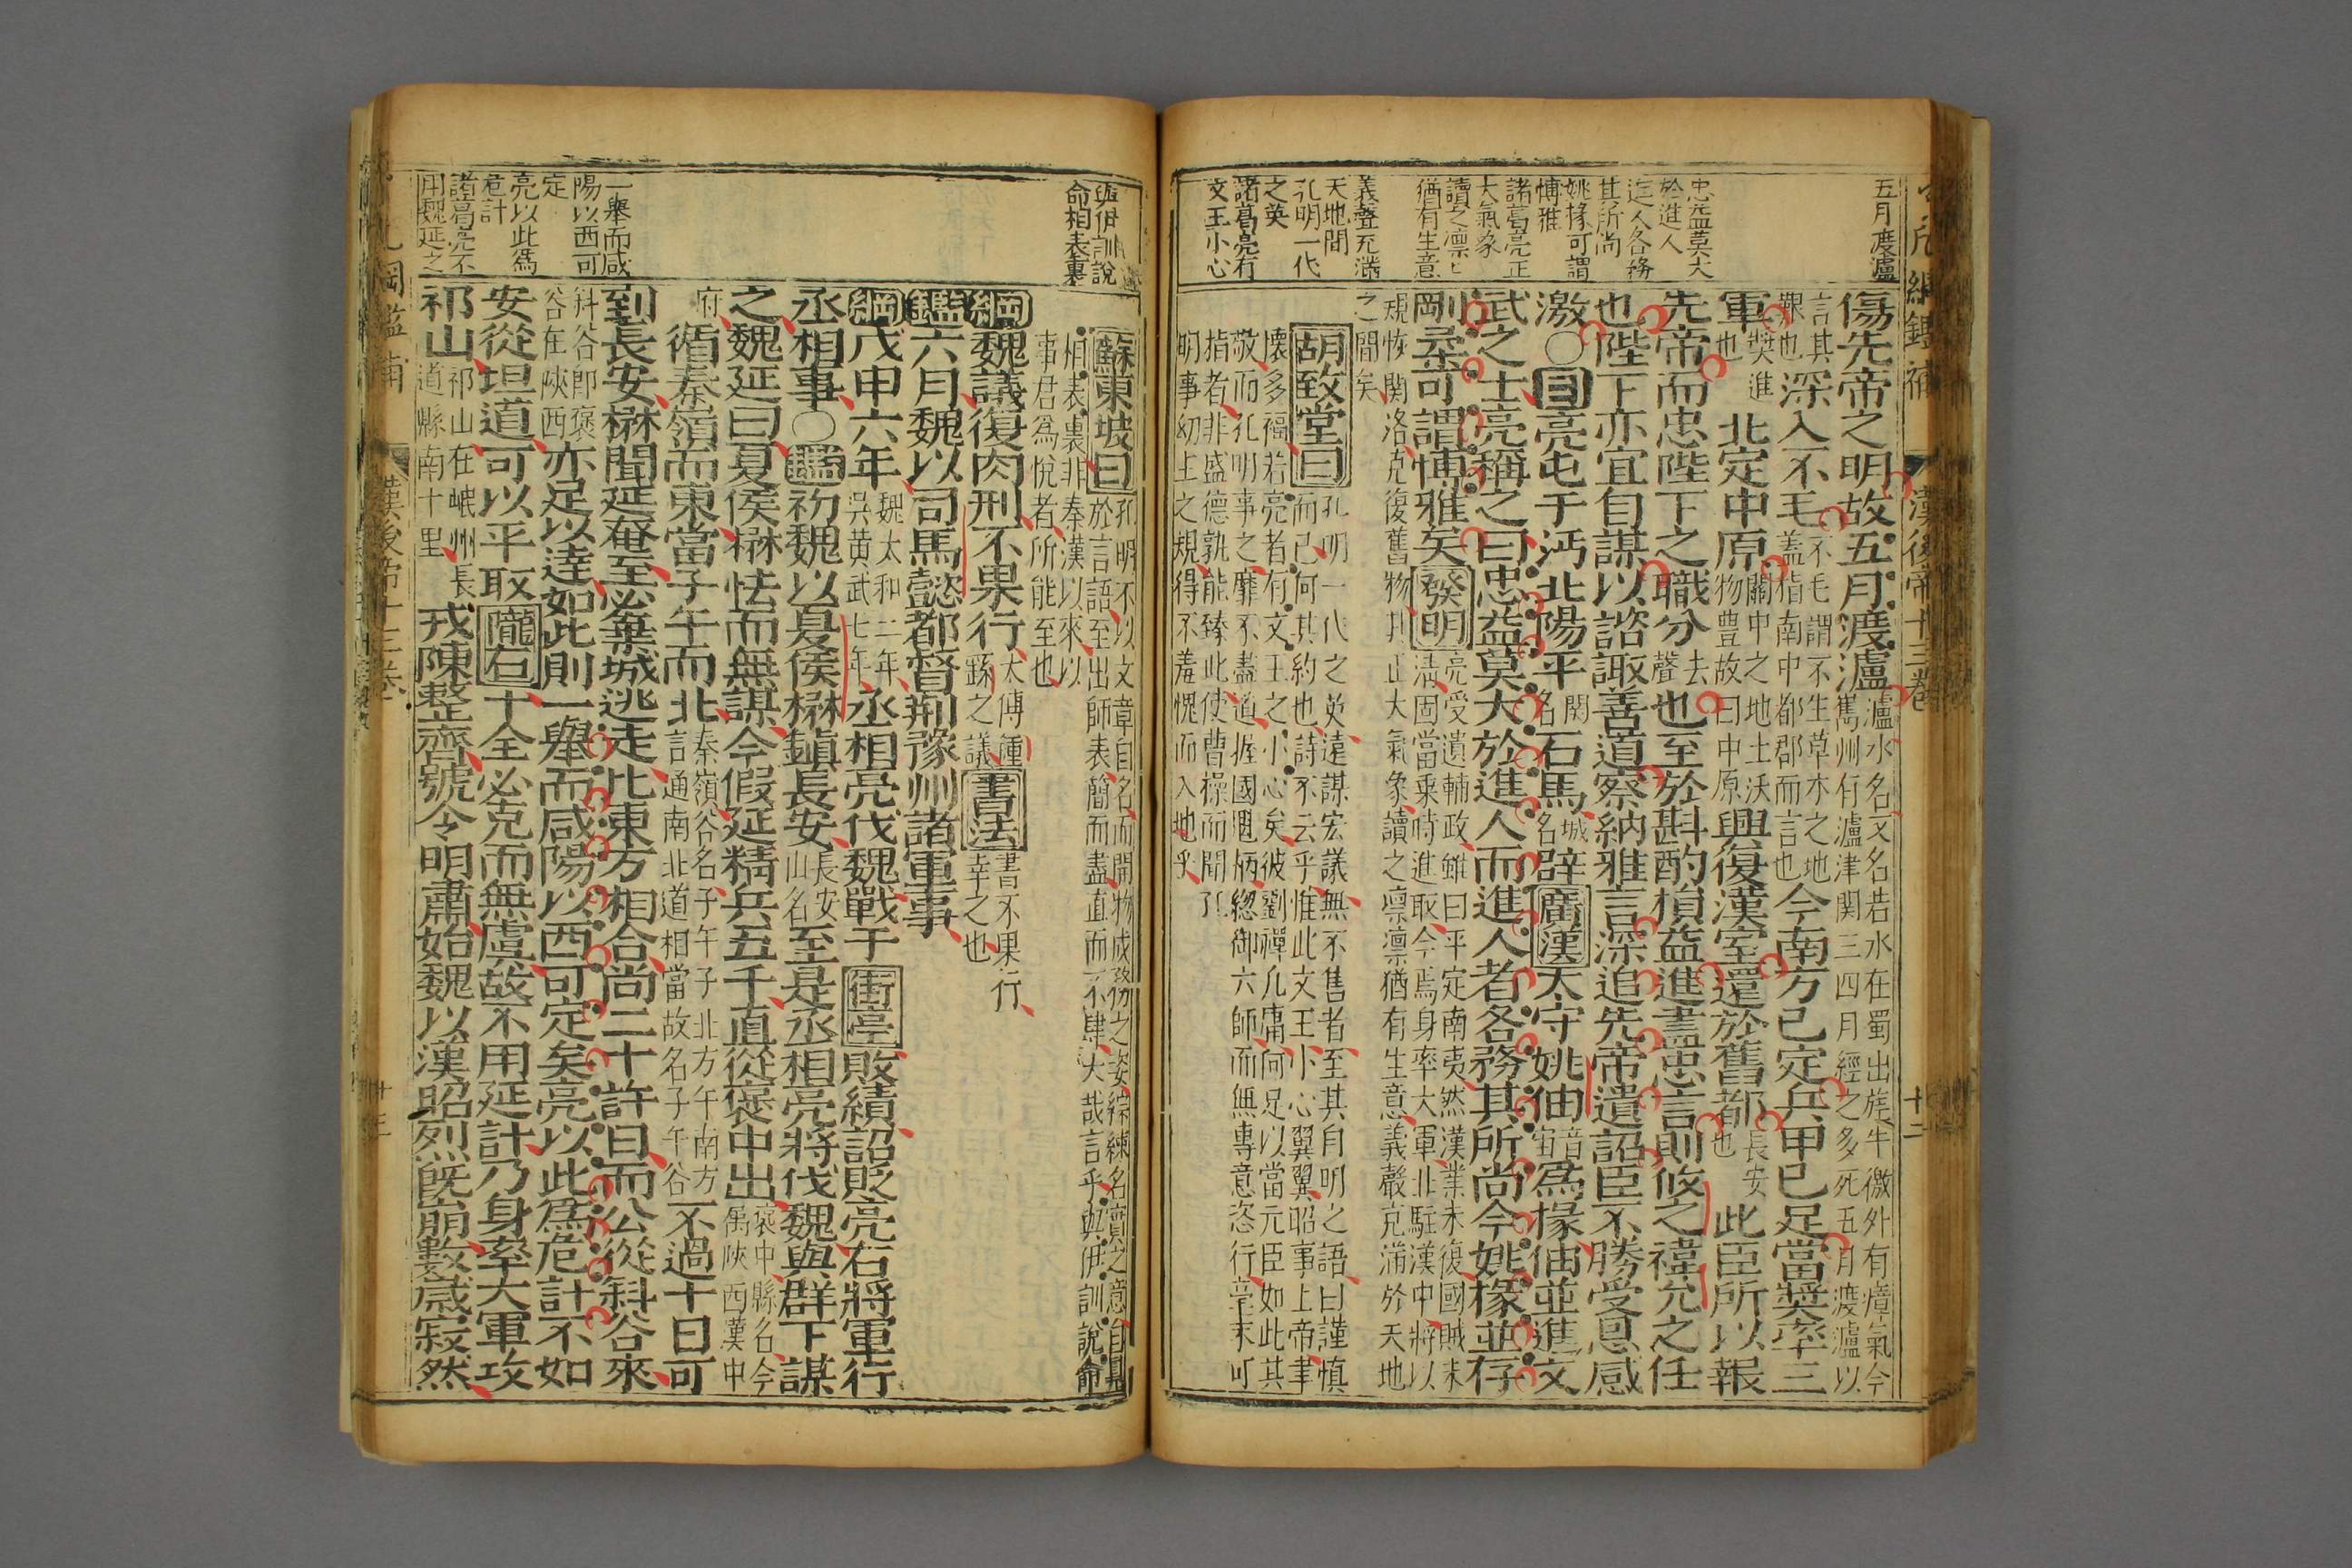 五月渡瀘
忠益莫大
於進人
進人各務
其所尚
姚掾可謂
博雅
諸葛亮正
大氣象
讀之凛凛
猶有生意
義聲充滿
天地間
孔明一代
之英
諸葛亮有
文王小心
漢後帝十三卷
十二
傷先帝之明故五月渡瀘瀘水名又名若水在蜀出旄牛徼外有瘴氣今
嶲州有瀘津関三四月經之多死五月渡瀘以
言其
艱也深入不毛不毛謂不生草木之地
蓋指南中都郡而言也今南方已定兵甲已足當獎率三
軍獎進
也北定中原關中之地土沃
物豊故曰中原興復漢室還於舊都長安
也此臣所以報
先帝而忠陛下之職分去
聲也至於斟酌損益進盡忠言則攸之禕允之任
也陛下亦宜自謀以諮諏善道察納雅言深追先帝遺詔臣不勝受恩感
激○目亮屯于沔北陽平関
名石馬城
名辟廣漢太守姚伷音
宙為掾伷並進文
武之士亮稱之曰忠益莫大於進人而進人者各務其所尚今姚掾並存
剛柔可謂博雅矣發明亮受遺輔政雖曰平定南夷然漢業未復國賊未
清固當乘時進取今焉身率大軍北駐漢中將以
規恢関洛克復舊物其正大氣象讀之凛凛猶有生意義聲充滿於天地
之間矣
胡致堂曰孔明一代之英遠謀宏議無不售者至其自明之語曰謹慎
而已何其約也詩不云乎惟此文王小心翼翼昭事上帝聿
懷多福若亮者有文王之小心矣彼劉禪凡庸何足以當元臣如此其
敬而孔明事之靡不盡道握國匭柄緫御六師而無專意恣行毫末可
指者非盛德孰能臻此使曹操而聞
明事幼主之規得不羞愧而入地乎
與伊訓說
命相表裏
一舉而咸
陽以西可
定
亮以此為
危計
諸葛亮不
用魏延之
蘇東坡曰孔明不以文章自名而開物成務之姿綜練名實之意自見
於言語至出師表簡而盡直而不肆大哉言乎與伊訓說命
相表裏非秦漢以來以
事君為悅者所能至也
綱魏議復肉刑不果行太傅鍾
繇之議書法書不果行
幸之也
鑑六月魏以司馬懿都督荆豫州諸軍事
綱戊申六年魏太和二年
吳黄武七年丞相亮伐魏戰于街亭敗績詔貶亮右將軍行
丞相事○鑑初魏以夏侯楙鎮長安長安
山名至是丞相亮將伐魏與群下謀
之魏延曰夏侯楙怯而無謀今假延精兵五千直從褒中出褒中縣名今
屬陝西漢中
府循秦嶺而東當子午而北秦嶺谷名子午子北方午南方
言通南北道相當故名子午谷不過十日可
到長安楙聞延奄至必棄城逃走比東方相合尚二十許日而公從斜谷來
斜谷即褒
谷在陝西亦足以達如此則一舉而咸陽以西可定矣亮以此為危計不如
安從坦道可以平取隴右十全必克而無虞故不用延計乃身率大軍攻
祁山祁山在岷州長
道縣南十里戎陳整齊號令明肅始魏以漢昭烈既崩數歲寂然
漢後帝十三卷
十三